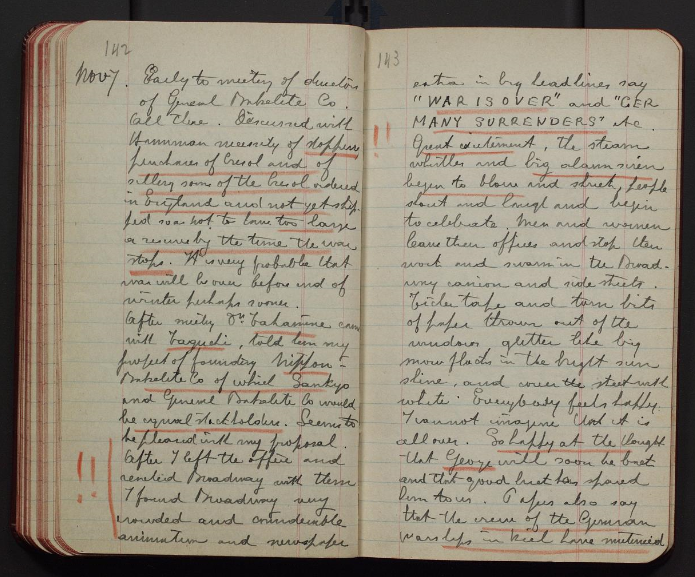 142
Nov 7. Early to meeting of directors
of General Bakelite Co.
All there. Discussed with
necessity of stopping
purchases of Cresol and of
selling some of the Cresol ordered
in England and not yet ship
ped so as not to have too large
a reserve by the time the war
stops. It is very probable that
war will be over before end of
winter perhaps sooner.
After meeting Dr. Takamine came
with Taguchi, told him my
project of founding Nippon-
Bakelite Co of which Sankyo
and General Bakelite Co would
be equal stockholders. Seems to
be pleased with my proposal.
!! After I left the office and
reached Broadway with them
I found Broadway very
crowded and considerable
animation and newspaper
143
extra in big headlines say
"WAR IS OVER" and "GER
MANY SURRENDERS" etc.
!! Great excitement, the steam
whistles and big alarm siren
began to blow and shriek, people
shout and laugh and begin
to celebrate. Men and women
leave their offices and stop their
work and swarm in the Broad-
way canyon and side streets.
Ticker tape and torn bits
of paper thrown out of the
windows, glitter like big
snow flakes in the bright sun
shine, and cover the street with
white. Everybody feels happy.
I cannot imagine that it is
all over. So happy at the thought
that George will soon be back
and that good luck has spared
him to us. Papers also say
that the crew of the German
warships in Kiel have mutinied